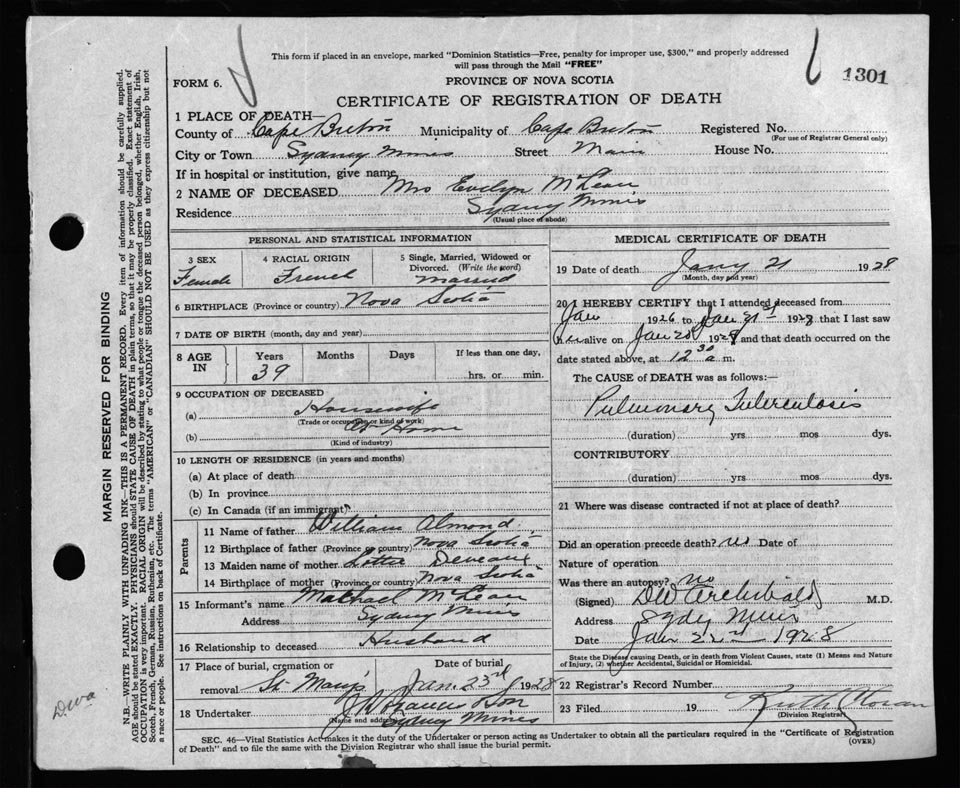 This form if placed in an envelope, marked "Dominion Statistics—Free, penalty for improper use, $300," and properly addressed
will pass through the Mail "FREE"
1301
FORM 6.
PROVINCE OF NOVA SCOTIA
CERTIFICATE OF REGISTRATION OF DEATH
1 PLACE OF DEATH—
County of Cape Breton Municipality of Cape Breton Registered No.
(For use of Registrar General only)
City or Town Sydney Mines Street Main House No.
If in hospital or institution, give name
2 NAME OF DECEASED Mrs Evelyn McLean
Residence Sydney Mines
(Usual place of abode)
PERSONAL AND STATISTICAL INFORMATION
3 SEX
Female
4 RACIAL ORIGIN
French
5 Single, Married, Widowed or
Divorced. (Write the word)
Married
6 BIRTHPLACE (Province or country) Nova Scotia
7 DATE OF BIRTH (month, day and year)
8 AGE IN Years Months Days If less than one day,
39 hrs. or min.
9 OCCUPATION OF DECEASED
(a) Housewife
(Trade or occupation or kind of work)
(b) At Home
(Kind of industry)
10 LENGTH OF RESIDENCE (in years and months)
(a) At place of death
(b) In province
(c) In Canada (if an immigrant)
Parents
11 Name of father William Almond
12 Birthplace of father (Province or country) Nova Scotia
13 Maiden name of mother Lottie Deveaux
14 Birthplace of mother (Province or country) Nova Scotia
15 Informant's name Michael McLean
Address Sydney Mines
16 Relationship to deceased Husband
17 Place of burial, cremation or Date of burial
removal St Mary's Jan. 23rd 1928
18 Undertaker Son
(Name and address) Sydney Mines
MEDICAL CERTIFICATE OF DEATH
19 Date of death Jany 21 1928
(Month, day and year)
20 I HEREBY CERTIFY that I attended deceased from
Jan 1926 to Jan 21st 1928 that I last saw
her alive on Jan 20 1928 and that death occurred on the
date stated above, at 12 30 a m.
The CAUSE of DEATH was as follows:—
Pulmonary Tuberculosis
(duration) yrs mos dys.
CONTRIBUTORY
(duration) yrs mos dys.
21 Where was disease contracted if not at place of death?
Did an operation precede death? no Date of
Nature of operation
Was there an autopsy? no
(Signed) DW Archibald M.D.
Address Sydney Mines
Date Jan 22nd 1928
State the Disease causing Death, or in death from Violent Causes, state (1) Means and Nature
of Injury, (2) whether Accidental, Suicidal or Homicidal.
22 Registrar's Record Number
23 Filed 19 Ruth Moran
(Division Registrar)
SEC. 46—Vital Statistics Act makes it the duty of the Undertaker or person acting as Undertaker to obtain all the particulars required in the "Certificate of Registration
of Death" and to file the same with the Division Registrar who shall issue the burial permit.
(OVER)
MARGIN RESERVED FOR BINDING
N.B.—WRITE PLAINLY WITH UNFADING INK—THIS IS A PERMANENT RECORD. Every item of information should be carefully supplied.
AGE should be stated EXACTLY. PHYSICIANS should STATE CAUSE OF DEATH in plain terms, so that it may be properly classified. Exact statement of
OCCUPATION is very important. RACIAL ORIGIN will be described by stating to what people or tongue the deceased person belonged, whether English, Irish,
Scotch, French, German, Russian, Ruthenian, etc. The terms "AMERICAN" or "CANADIAN" SHOULD NOT BE USED as they express citizenship but not
a race or people. See instructions on back of Certificate.